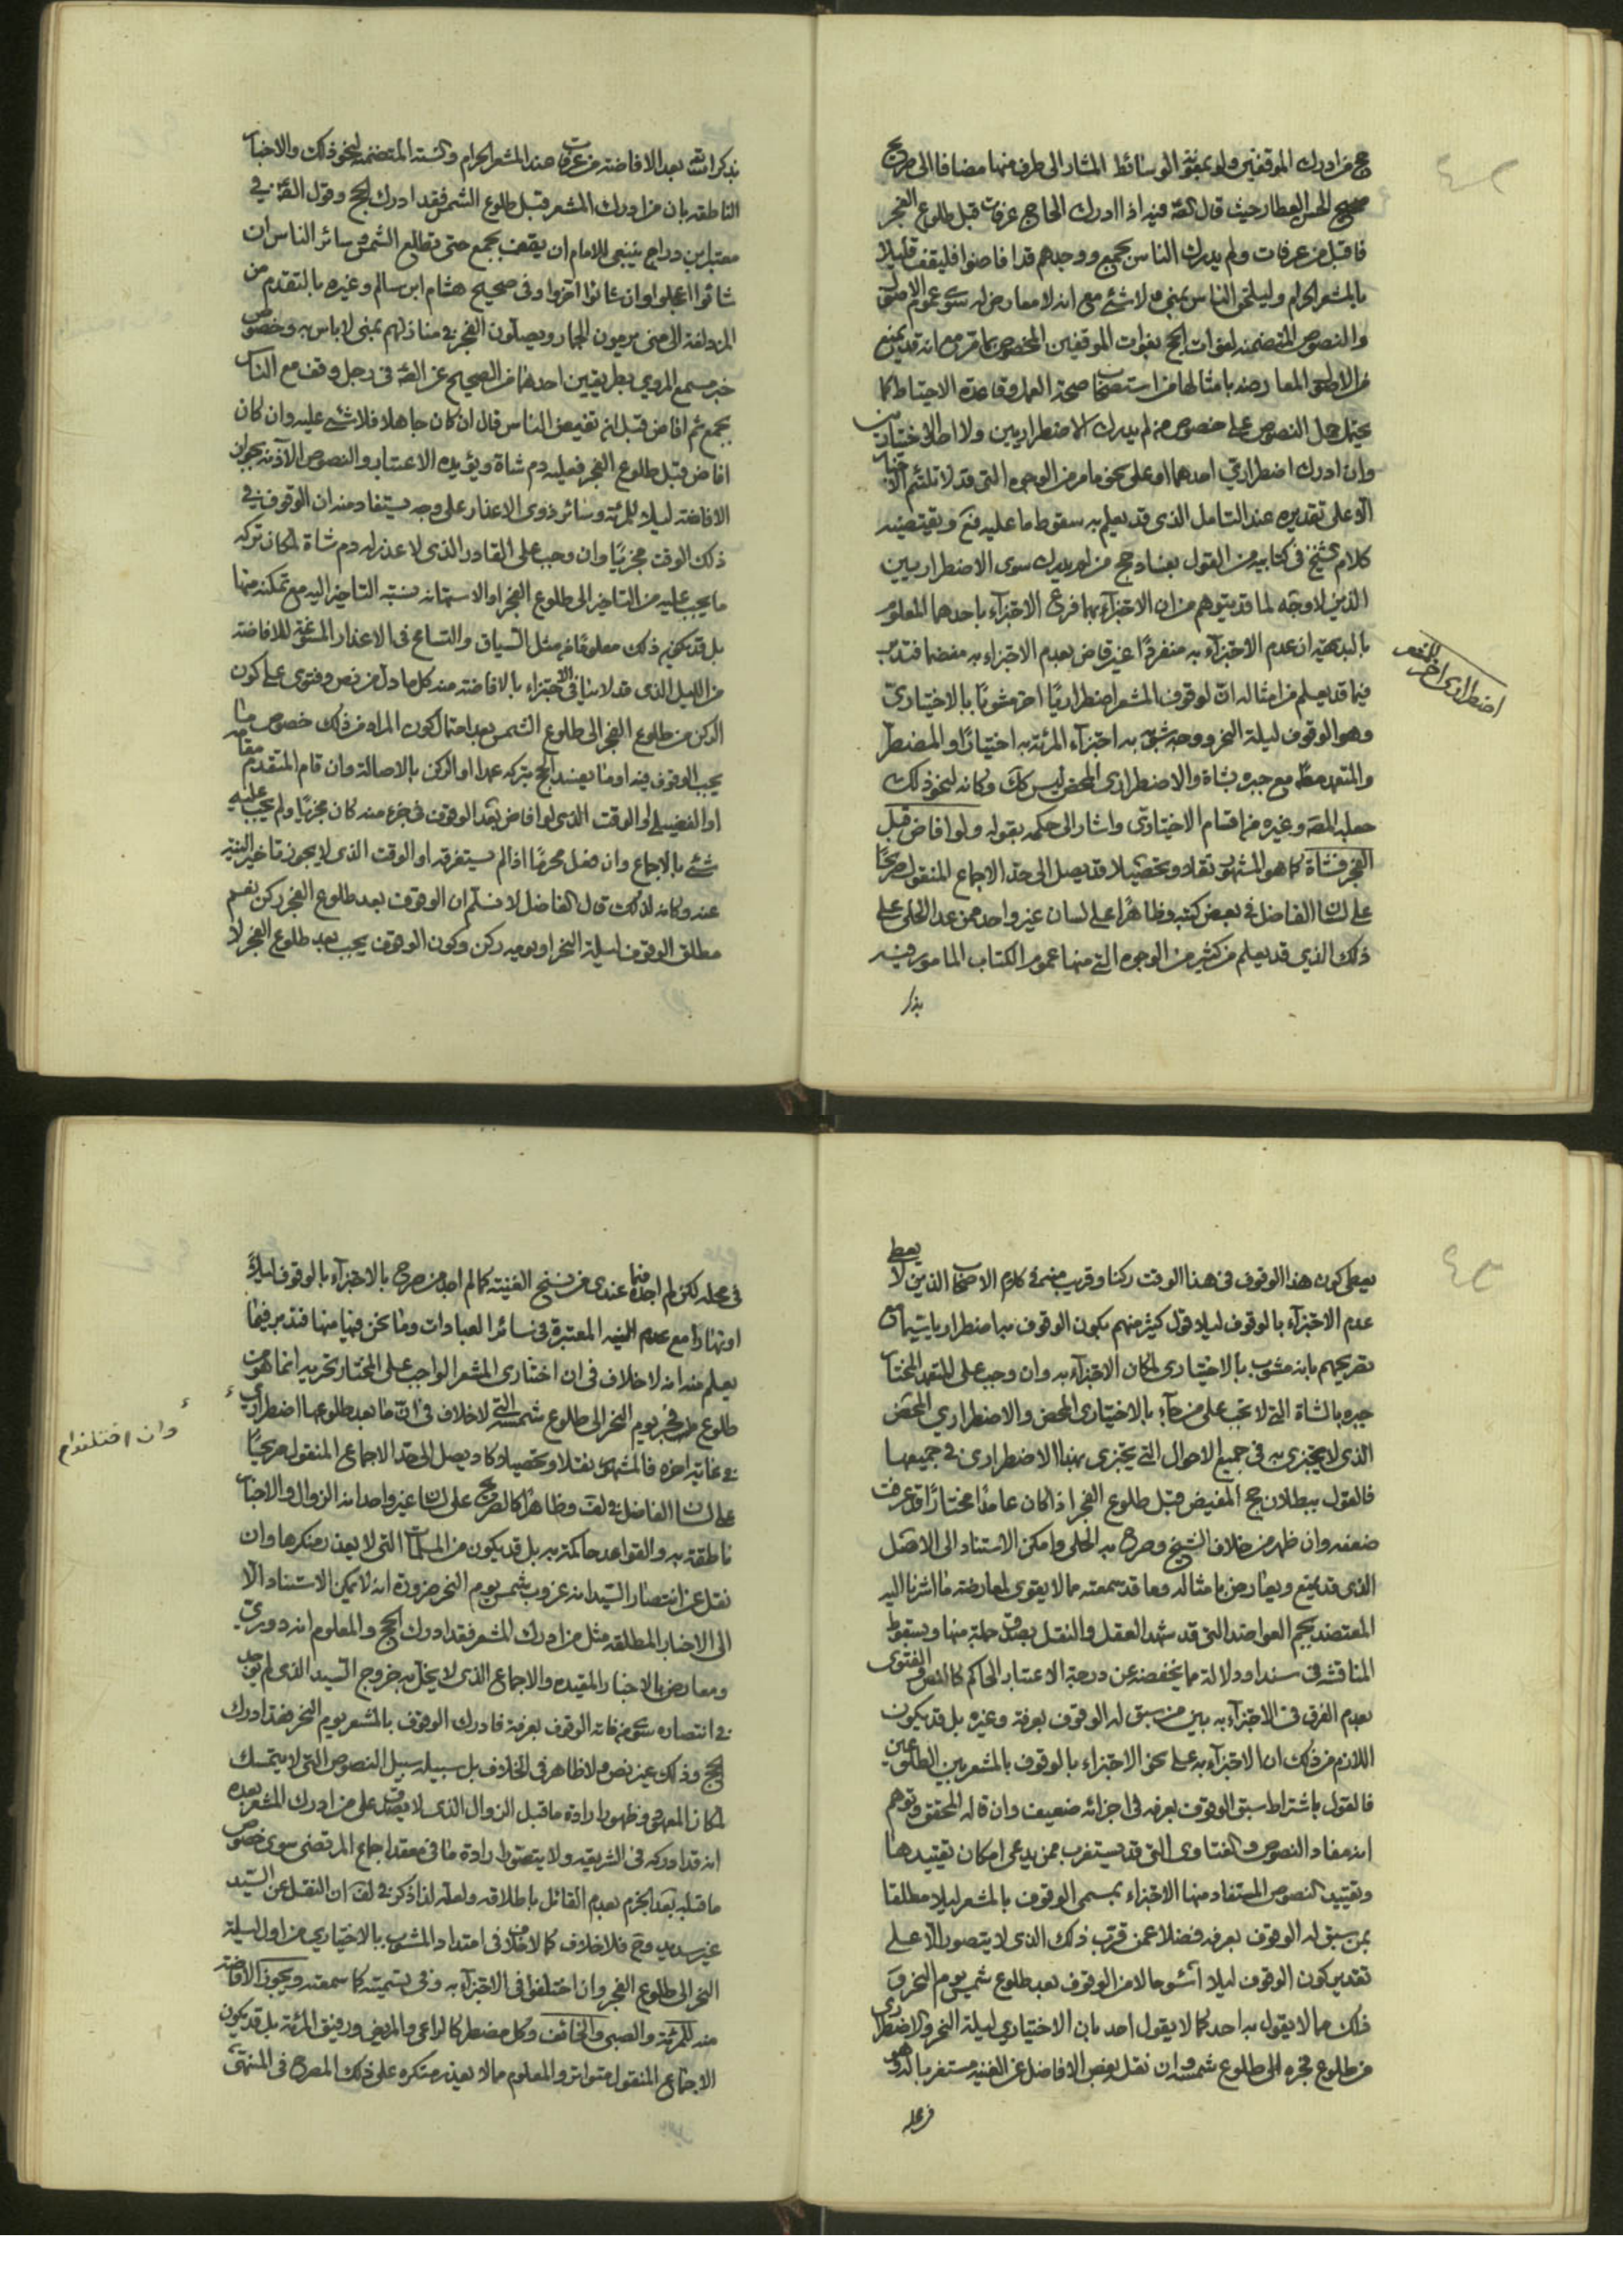 حج من ادرك الموقفين ولو بمعونة الوسائط المشار الى طرف منها مضافا الى صريح
صحيح الحسن العطار حيث قال فيه اذا ادرك الحاج عرفات قبل طلوع الفجر
فاقبل من عرفات ولم يدرك الناس بجمع ووجدهم قد افاضوا فليقف قليلا
بالمشعر الحرام وليلحق الناس بمنى ولا شئ مع انه لا معارض له سوى عموم الاصل
والنصوص المتضمنه لفوات الحج بفوات الموقفين المخصوص بما مر مع انه قد يمنع
من الاطلاق المعارضه بامثالها من استصحاب صحة العمل وقاعدة الاحتياط كما
يحتمل حمل النصوص على خصوص من لم يدرك الاضطراريين ولا احد الاختياريين
وان ادرك اضطراري احدهما او على نحو ما مر من الوجوه التي قد لا تلتئم
الا على تقديره عند التامل الذي قد يعلم به سقوط ما عليه ويقتضيه
كلام الشيخ في كتابيه من القول بفساد حج من لم يدرك سوى الاضطراريين
الذين لا وجه لما قد يتوهم من ان الاجتزاء بهما فرع الاجتزاء باحدهما المعلوم
بالبديهة ان عدم الاجتزاء به منفردا غير قاض بعدم الاجتزاء به منضما فتدبر
فيما قد يعلم من امثاله ان لوقوف المشعر اضطراريا اخر مشوبا بالاختياري
وهو الوقوف ليلة النحر ووجه شبهه به اجتزاء المرئة به اختيارا والمضطر
والمتعمد مطلقا مع جبره بشاة والاضطراري المحض ليس كك وكانه لنحو ذلك
جعله المصـ وغيره من اقسام الاختياري واشار الى حكمه بقوله ولو افاض قبل
الفجر فشاة كما هو المشهور نقلا وتحصيلا قد يصل الى حد الاجماع المنقول صريحا
على لسان الفاضل في بعض كتبه وظاهرا على لسان غير واحد ممن عد الحلي على
ذلك الذي قد يعلم من كثير من الوجوه التي منها عموم الكتاب المامور فيه
بذكر
اضطراري اخر للمشعر
بذكر الله تعـ بعد الافاضة من عرفات عند المشعر الحرام والسنة المتضمنه لنحو ذلك والاخبار
الناطقه بان من ادرك المشعر قبل طلوع الشمس فقد ادرك الحج وقول الصـ في
معتبر ابن دراج ينبغي للامام ان يقف بجمع حتى تطلع الشمس وسائر الناس ان
شائوا اعجلوا وان شائوا اخروا وفي صحيح هشام ابن سالم وغيره بالتقدم من
المزدلفة الى منى يرمون الجمار ويصلون الفجر في منازلهم بمنى لا باس به وخصوص
خبر مسمع المروي بطريقين احدهما من الصحيح عن الصـ في رجل وقف مع الناس
بجمع ثم افاض قبل ان تفيض الناس قال ان كان جاهلا فلا شئ عليه وان كان
افاض قبل طلوع الفجر فعليه دم شاة ويؤيده الاعتبار والنصوص الآذنه بجواز
الافاضه ليلا للمرئة وسائر ذوي الاعذار على وجه يستفاد منه ان الوقوف في
ذلك الوقت مجزيا وان وجب على القادر الذي لا عذر له دم شاة لمكان تركه
ما يجب عليه من التاخير الى طلوع الفجر او لاستهانه بنسبة التاخير اليه مع تمكنه منها
بل قد يكون ذلك معلوما من مثل السياق والتسامح في الاعذار المسوغة للافاضه
من الليل الذي قد لا ينافي الاجتزاء بالافاضه منه كل ما دل من نص وفتوى على كون
الركن من طلوع الفجر الى طلوع الشمس بعد احتمال كون المراد من ذلك خصوص ما
يجب الوقوف فيه او ما يفسد الحج بتركه عمدا او الركن بالاصالة وان قام المتقدم مقامه
او الفضيلي او الوقت الذي لو افاض بعد الوقوف في جزء منه كان مجزيا ولم يجب عليه
شئ بالاجماع وان فعل محرما اذا لم يستغرقه او الوقت الذي لا يجوز تاخير النيه
عنه وكانه لذلك قال الفاضل لا نسلم ان الوقوف بعد طلوع الفجر ركن نعم
مطلق الوقوف ليلة النحر او يوميه ركن وكون الوقوف يجب بعد طلوع الفجر لا
يعطي كون هذا الوقوف في هذا الوقت ركنا وقريب منه كلام الاصحاب الذين لا يعطي
عدم الاجتزاء بالوقوف ليلا قول كثير منهم بكون الوقوف به اضطراريا سيما مع
تصريحهم بانه مشوب بالاختياري لمكان الاجتزاء به وان وجب على المتعمد المختار
جبره بالشاة التي لا تجب على من جاء بالاختياري المحض والاضطراري المحض
الذي لا يجتزى به في جميع الاحوال التي يجتزى بهذا الاضطراري في جميعها
فالقول ببطلان حج المفيض قبل طلوع الفجر اذا كان عامدا مختارا قد عرفت
ضعفه وان ظهر من خلاف الشيخ وصرح به الحلي وامكن الاستناد الى الاصل
الذي قد يمنع ويعارض بامثاله وما قد سمعته مما لا يقوى لمعارضته ما اشرنا اليه
المعتضد بجم العواضد التي قد شهد العقل والنقل بصدق جملة منها وبسقوط
المناقشه في سند او دلالة مما يخفضه عن درجة الاعتبار الحاكم كالنص والفتوى
بعدم الفرق في الاجتزاء به بين من سبق له الوقوف بعرفة وغيره بل قد يكون
اللازم من ذلك ان الاجتزاء به على نحو الاجتزاء بالوقوف بالمشعر بين الطلوعين
فالقول باشتراط سبق الوقوف بعرفه في اجزائه ضعيف وان قاله المحقق وتوهم
انه مفاد النصوص والفتاوى التي قد يستغرب ممن يدعي امكان تقييدها
وتقييد النصوص المستفاد منها الاجتزاء بمسمى الوقوف بالمشعر ليلا مطلقا
بمن سبق له الوقوف بعرفه فضلا عمن قرب ذلك الذي لا يتصور الا على
تقدير كون الوقوف ليلا اسوء حالا من الوقوف بعد طلوع شمس يوم النحر و
ذلك مما لا يقول به احد كما لا يقول احد بان الاختياري ليلة النحر والاضطراري
من طلوع فجره الى طلوع شمسه وان نقل بعض الافاضل عن الغنيه مستغربا له وهو
في محله
في محله لكن لم اجده فيما عندي من نسخ الغنيه كما لم اجد من صرح بالاجتزاء بالوقوف ليلا
او نهارا مع عدم النيه المعتبرة في سائر العبادات وما نحن فيه منها فتدبر فيما
يعلم منه انه لا خلاف في ان اختياري المشعر الواجب على المختار تحريه انما هو من
طلوع فجر يوم النحر الى طلوع شمسه التي لا خلاف في ان ما بعد طلوعها اضطراري
في غاية اخره فالمشهور نقلا وتحصيلا كاد يصل الى حد الاجماع المنقول صريحا
على لسان الفاضل في لف وظاهرا كالصريح على لسان غير واحد انه الزوال والاخبار
ناطقة به والقواعد حاكمة به بل قد يكون من المسلمات التي لا يعذر منكرها وان
نقل عن انتصار السيد انه غروب شمس يوم النحر ضرورة انه لا يمكن الاستناد الا
الى الاخبار المطلقه مثل من ادرك المشعر فقد ادرك الحج والمعلوم انه دوري
ومعارض بالاخبار المقيده والاجماع الذي لا يخل به خروج السيد الذي لم يوجد
في انتصاره سوى من فاته الوقوف بعرفة فادرك الوقوف بالمشعر يوم النحر فقد ادرك
الحج وذلك غير نص ولا ظاهر في الخلاف بل سبيله سبيل النصوص التي لا يتمسك
لمكان المعهود وظهور ارادة ما قبل الزوال الذي لا يصدق على من ادرك المشعر بعده
انه قد ادركه في الشريعه ولا يتصور ارادة ما في معقد اجماع المرتضى سوى خصوص
ما قبله بعد الجزم بعدم القائل باطلاقه ولعله لذا ذكر في لف ان النقل عن السيد
غير سديد وح فلا خلاف كما لا خلاف في امتداد المشوب بالاختياري من اول ليلة
النحر الى طلوع الفجر وان اختلفوا في الاجتزاء به وفي تسميته كما سمعته ويجوز الافاضه
منه للمرئة والصبي والخائف وكل مضطر كالراعي والمريض ورفيق المرئة بل قد يكون
الاجماع المنقول متواتر والمعلوم مما لا يعذر منكره على ذلك المصرح في المنتهى
وان اختلفوا